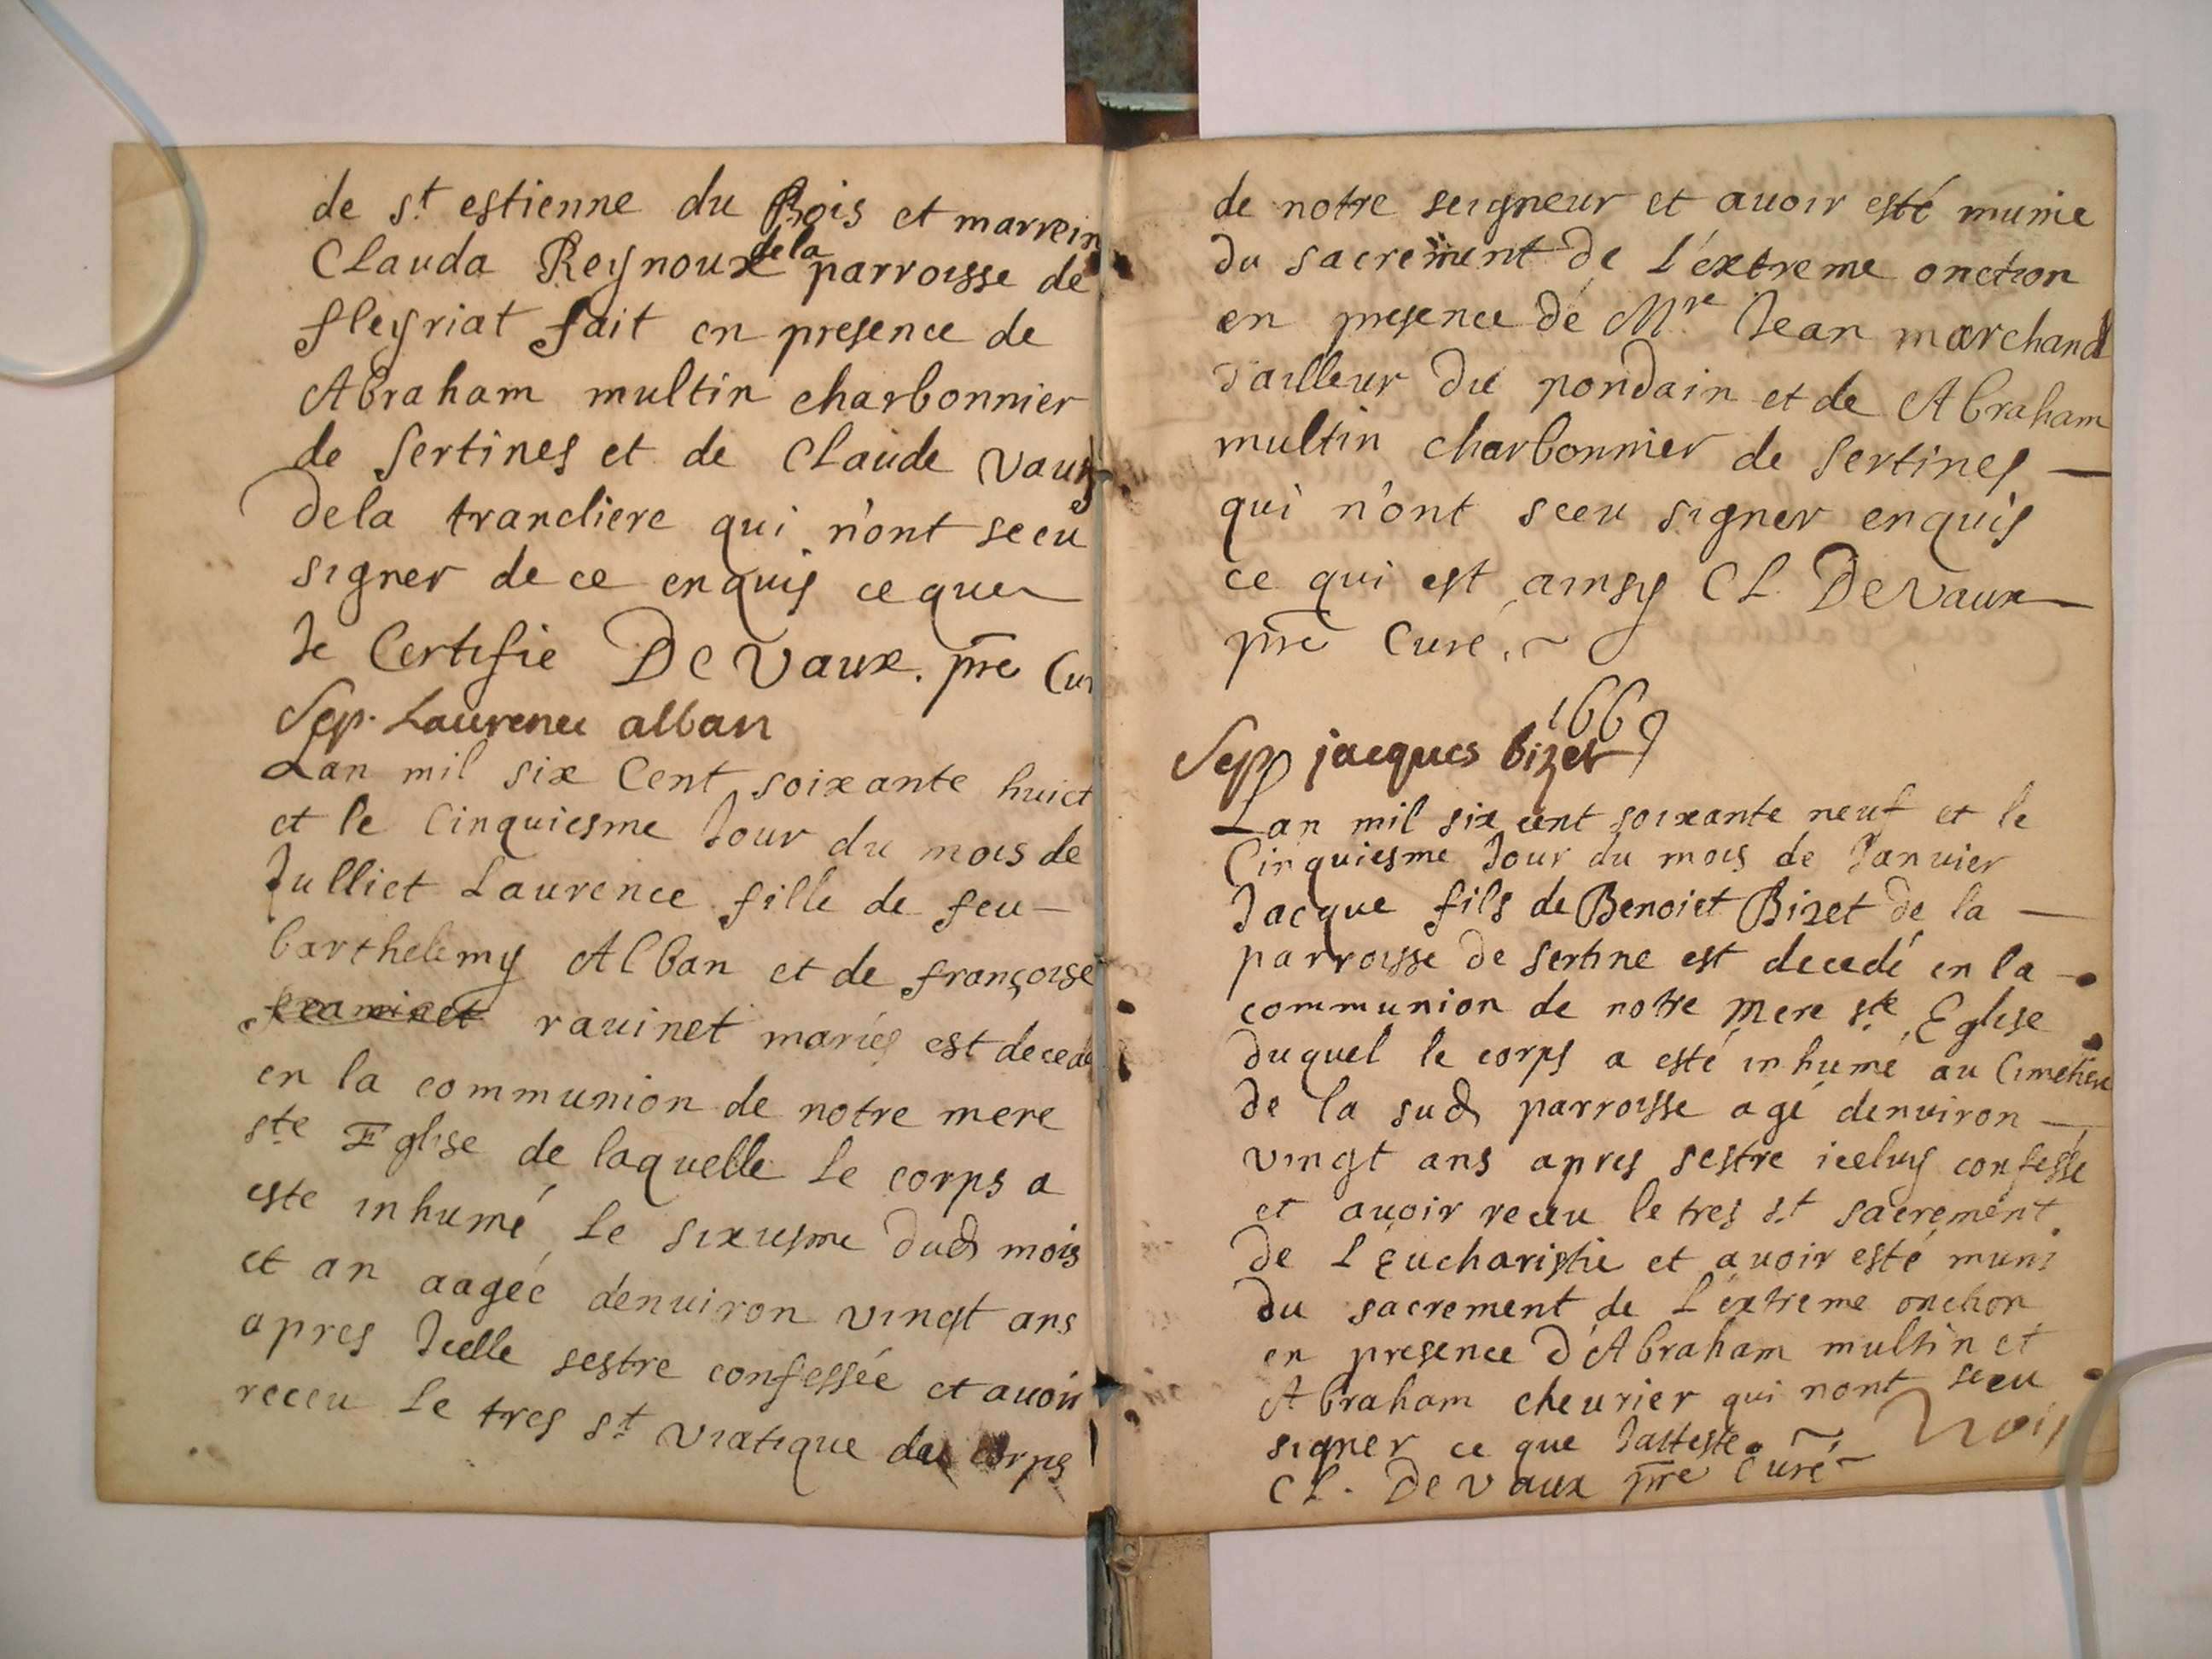 de st estienne du Bois et marrein
Clauda Reynoux dela parroisse de
fleyriat fait en presence de
Abraham multin charbonnier
de Sertines et de Claude vaux
dela trancliere qui n'ont sceu
signer de ce enquis ce que
Je Certifie De Vaux. pre Cur
Sep. Laurence alban
Lan mil six Cent soixante huict
et le Cinquiesme Jour du mois de
Julliet Laurence fille de feu
barthelemy Alban et de françoise
ravinet mariés est decedé
en la communion de notre mere
ste Eglise de laquelle le corps a
este inhumé le sixiesme dud mois
et an aagée d'enuiron vingt ans
apres Icelle sestre confessée et auoir
receu le tres st viatique du corps
de notre seigneur et auoir esté munie
du sacrement de l'éxtreme onction
en presence de Mre Jean marchand
tailleur du pondain et de Abraham
multin charbonnier de Sertines
qui n'ont sceu signer enquis
ce qui est ainsy CL. De Vaux
pre Curé.
1669
Sep jacques bizet
Lan mil six cent soixante neuf et le
Cinquiesme Jour du mois de Janvier
Jacque fils de Benoict Bizet de la
parroisse de Sertine est decedé en la
communion de notre mere ste Eglise
duquel le corps a esté inhumé au Cimetiere
de la sud parroisse agé denuiron
vingt ans apres sestre iceluy confessé
et auoir receu le tres st sacrement
de l'Eucharistie et auoir esté muni
du sacrement de l'extreme onction
en presence d'Abraham multin et
Abraham cheurier qui nont sceu
signer ce que Jatteste.
CL. De Vaux pre Curé